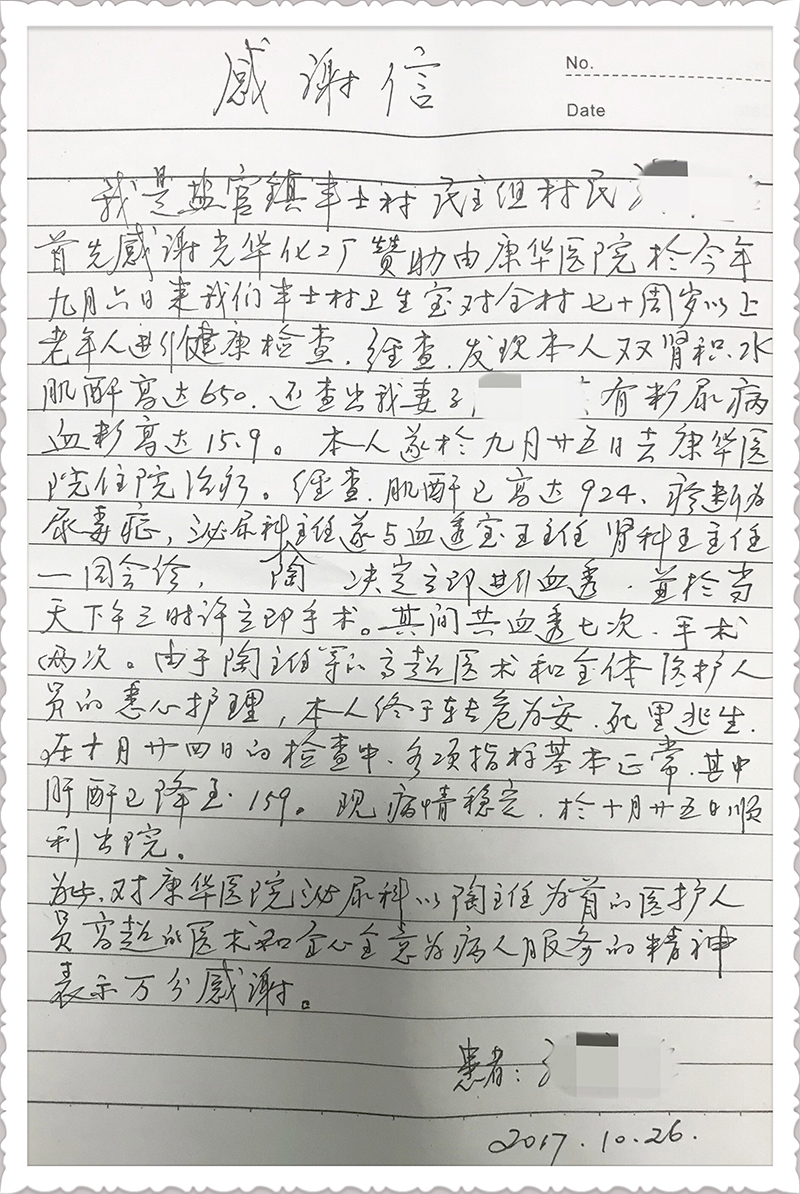 感谢信
No.
Date
我是盐官镇丰士村民主组村民
首先感谢光华化工厂赞助由康华医院於今年
九月六日来我们丰士村卫生室对全村七十周岁以上
老年人进行健康检查.经查.发现本人双肾积水
肌酐高达650.还查出我妻子 有糖尿病
血糖高达15.9。本人遂於九月廿五日去康华医
院住院治疗。经查.肌酐已高达924、诊断为
尿毒症,泌尿科主任遂与血透室王主任 肾科王主任
一同会诊, 陶 决定立即进行血透.并於当
天下午三时许立即手术。其间共血透七次.手术
两次。由于陶主任等的高超医术和全体医护人
员的悉心护理,本人终于转危为安.死里逃生.
在十月廿四日的检查中.各项指标基本正常.其中
肝酐已降至.159。现病情稳定.於十月廿五日顺
利出院。
为此.对康华医院泌尿科以陶主任为首的医护人
员高超的医术和全心全意为病人服务的精神
表示万分感谢。
患者:
2017.10.26.